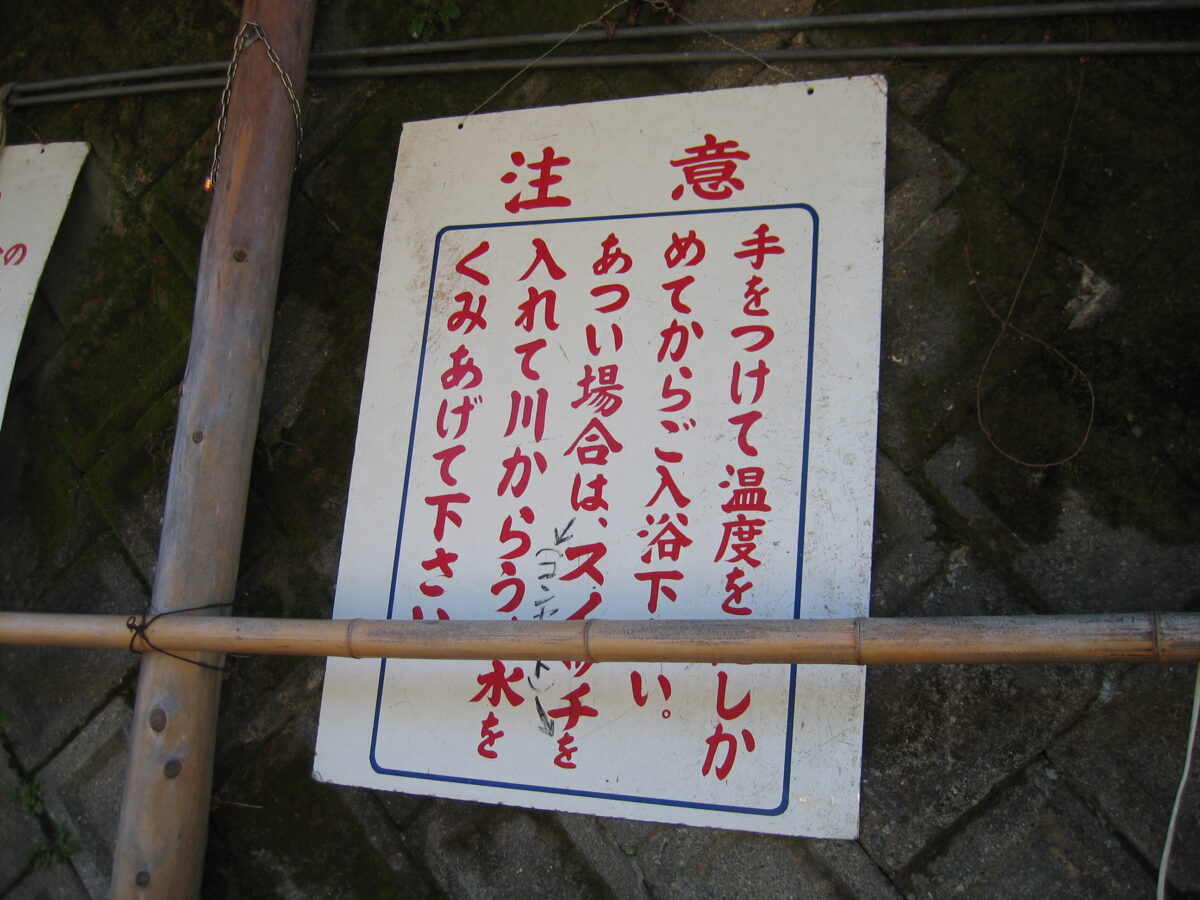 注意
手をつけて温度をたしか
めてからご入浴下さい。
あつい場合は、スイッチを
(コンセント)
入れて川からう水を
くみあげて下さい
の